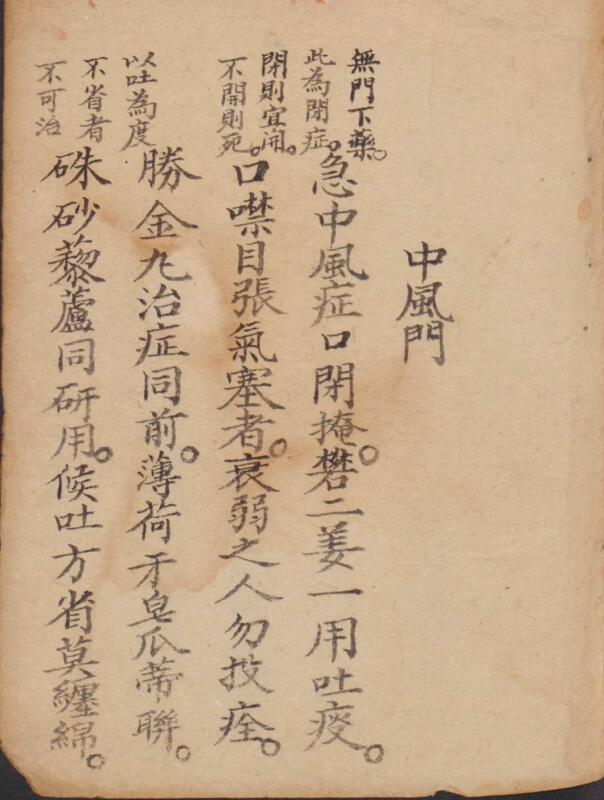 中風門
無門下藥。
此為閉症。
閉則宜開。
不開則死。
以吐為度
不省者
不可治
急中風症口閉掩。礬二姜一用吐痰。
口噤目張氣塞者。衰弱之人勿投痊。
勝金九治症同前。薄荷牙皂瓜蒂聯。
硃砂藜蘆同研用。候吐方省莫纏綿。